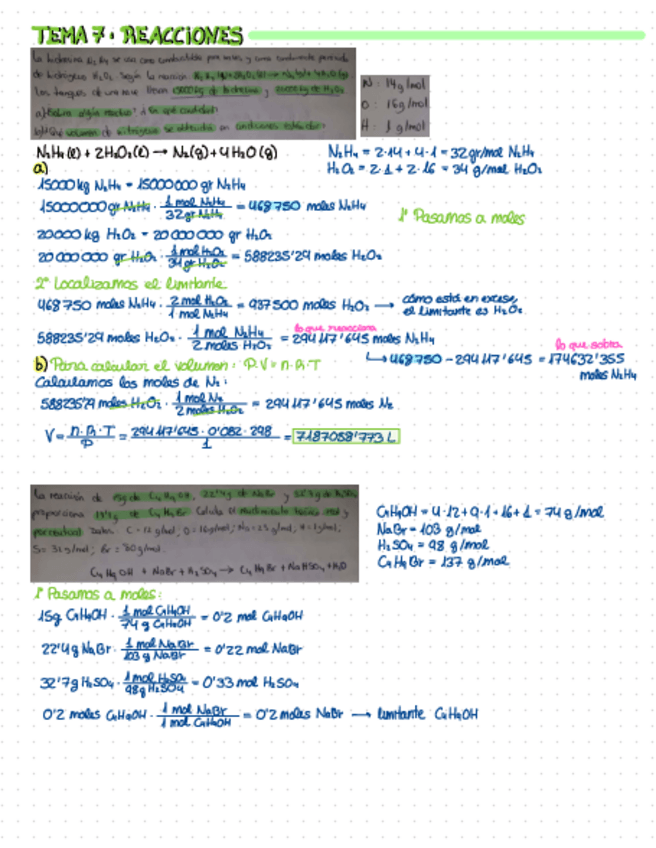 TEMA 7: REACCIONES
La hidracina N₂H₄ se usa como combustible para naves y como comburente peróxido
de hidrógeno H₂O₂. Según la reacción: N₂H₄(l)+2H₂O₂(l) → N₂(g)+4H₂O(g)
Los tanques de una nave llevan 15000kg de hidracina y 20000kg de H₂O₂
a) ¿Sobra algún reactivo? ¿En qué cantidad?
b) ¿Qué volumen de nitrógeno se obtendrá en condiciones estándar?
N: 14g/mol
O: 16g/mol
H: 1 g/mol
N₂H₄(l) + 2H₂O₂(l) → N₂(g) + 4H₂O(g)
N₂H₄ = 2·14 + 4·1 = 32gr/mol N₂H₄
H₂O₂ = 2·1 + 2·16 = 34 g/mol H₂O₂
a)
15000 kg N₂H₄ = 15000000 gr N₂H₄
15000000 gr N₂H₄ · 1 mol N₂H₄ / 32gr N₂H₄ = 468750 moles N₂H₄
1º Pasamos a moles
20000 kg H₂O₂ = 20 000 000 gr H₂O₂
20 000 000 gr H₂O₂ · 1 mol H₂O₂ / 34 gr H₂O₂ = 588235'29 moles H₂O₂
2º Localizamos el limitante
468750 moles N₂H₄ · 2 mol H₂O₂ / 1 mol N₂H₄ = 937500 moles H₂O₂ → cómo está en exceso, el limitante es H₂O₂
588235'29 moles H₂O₂ · 1 mol N₂H₄ / 2 moles H₂O₂ = 294117'645 moles N₂H₄
lo que reacciona
lo que sobra
↳ 468750 - 294117'645 = 174632'355 moles N₂H₄
b) Para calcular el volumen: P·V = n·R·T
Calculamos los moles de N₂:
588235'29 moles H₂O₂ · 1 mol N₂ / 2 moles H₂O₂ = 294117'645 moles N₂
V = n·R·T / P = 294117'645 · 0'082 · 298 / 1 = 7187058'773 L
La reacción de 15g de C₄H₉OH, 22'4g de NaBr y 32'7g de H₂SO₄
proporciona de C₄H₉Br. Calcula el rendimiento teórico molar y
porcentual. Datos: C = 12 g/mol; O = 16g/mol; Na = 23 g/mol; H = 1g/mol;
S = g/mol; Br = 80g/mol.
C₄H₉OH + NaBr + H₂SO₄ → C₄H₉Br + NaHSO₄ + H₂O
C₄H₉OH = 4·12 + 9·1 + 16 + 1 = 74 g/mol
NaBr = 103 g/mol
H₂SO₄ = 98 g/mol
C₄H₉Br = 137 g/mol
1º Pasamos a moles:
15g C₄H₉OH · 1 mol C₄H₉OH / 74 g C₄H₉OH = 0'2 mol C₄H₉OH
22'4g NaBr · 1 mol NaBr / 103 g NaBr = 0'22 mol NaBr
32'7g H₂SO₄ · 1 mol H₂SO₄ / 98g H₂SO₄ = 0'33 mol H₂SO₄
0'2 moles C₄H₉OH · 1 mol NaBr / 1 mol C₄H₉OH = 0'2 moles NaBr → limitante C₄H₉OH